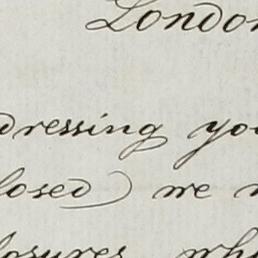 London
dressing you
losed) we
losures wh